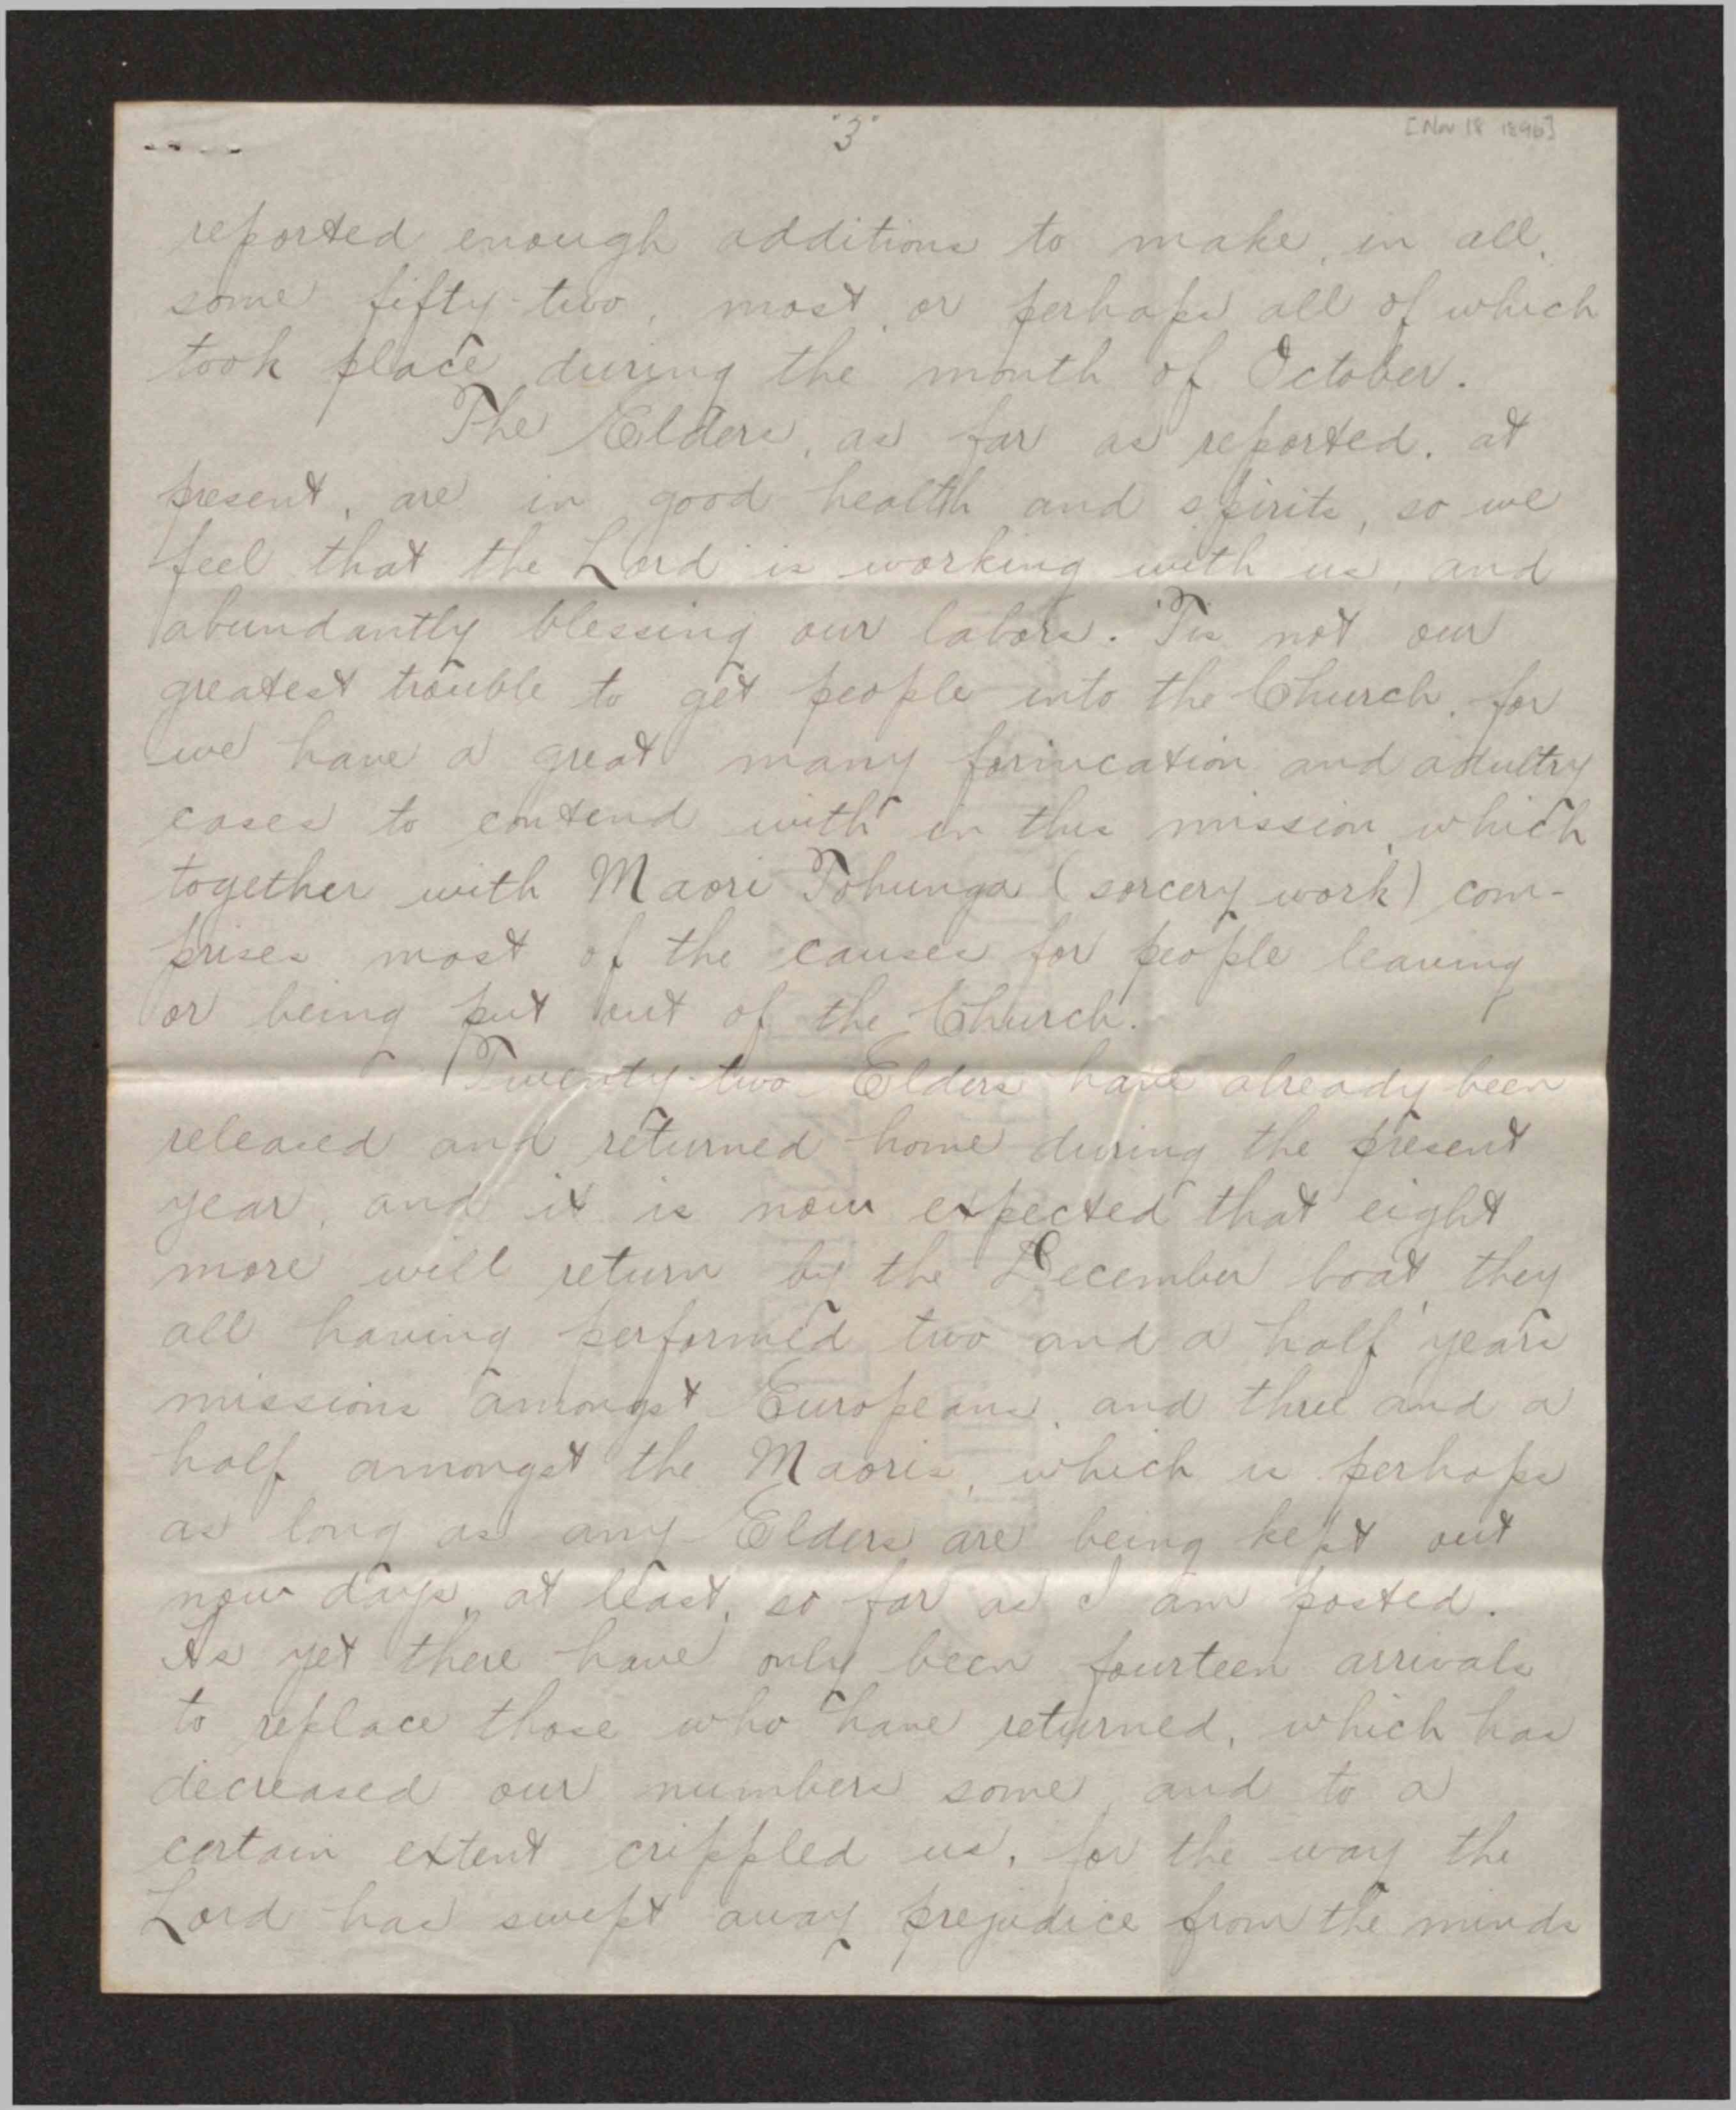 "3"
[Nov 18 1896]
reported enough additions to make, in all,
some fifty-two, most, or perhaps all of which
took place during the month of October.
The Elders, as far as reported, at
present, are in good health and spirits, so we
feel that the Lord is working with us, and
abundantly blessing our labors. 'Tis not our
greatest trouble to get people into the Church, for
we have a great many forincation and adultry
cases to contend with in this mission, which
together with Maori Tohunga (sorcery work) com-
prises most of the causes for people leaving
or being put out of the Church.
Twenty-two Elders have already been
released and returned home during the present
year, and it is now expected that eight
more will return by the December boat, they
all having performed two and a half years
missions amongst Europeans, and three and a
half amongst the Maoris, which is perhaps
as long as any Elders are being kept out
now days, at least, so far as I am posted.
As yet there have only been fourteen arrivals
to replace those who have returned, which has
decreased our numbers some, and to a
certain extent crippled us, for the way the
Lord has swept away prejudice from the minds